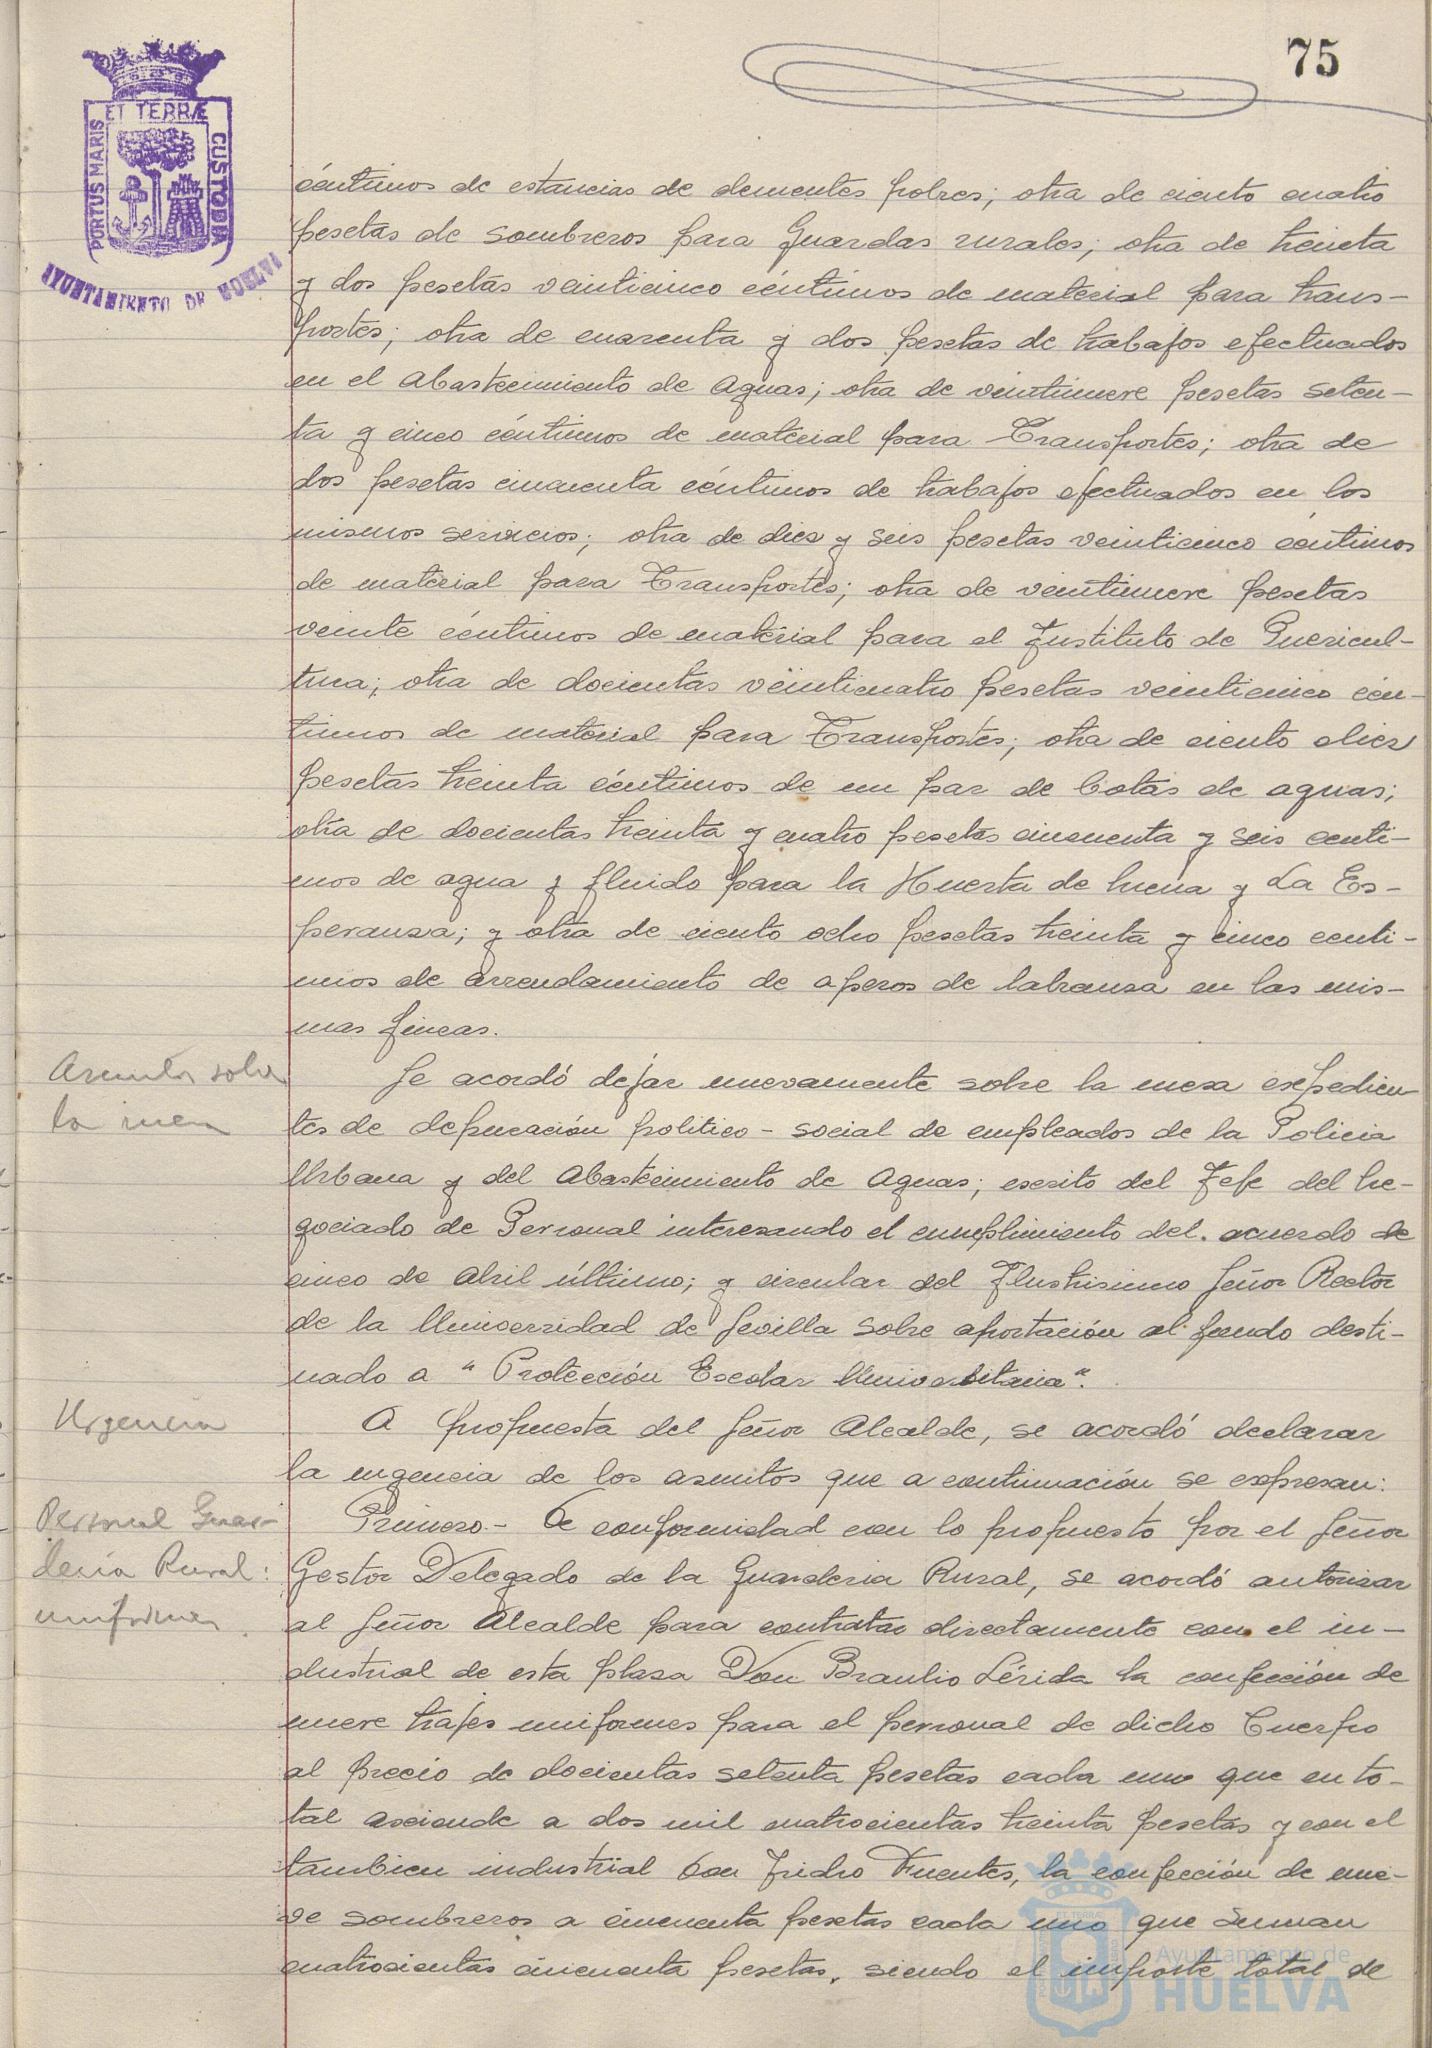 75
PORTUS MARIS ET TERRÆ CUSTODIA
AYUNTAMIENTO DE HUELVA
céntimos de estancias de dementes pobres; otra de ciento cuatro
pesetas de sombreros para Guardas rurales; otra de treinta
y dos pesetas veinticinco céntimos de material para trans-
portes; otra de cuarenta y dos pesetas de trabajos efectuados
en el Abastecimiento de Aguas; otra de veintinueve pesetas seten-
ta y cinco céntimos de material para Transportes; otra de
dos pesetas cincuenta céntimos de trabajos efectuados en los
mismos servicios; otra de diez y seis pesetas veinticinco céntimos
de material para Transportes; otra de veintinueve pesetas
veinte céntimos de material para el Instituto de Puericul-
tura; otra de docientas veinticuatro pesetas veinticinco cén-
timos de material para Transportes; otra de ciento diez
pesetas treinta céntimos de un par de botas de aguas;
otra de docientas treinta y cuatro pesetas cincuenta y seis centi-
mos de agua y fluido para la Huerta de Mena y La Es-
peranza; y otra de ciento ocho pesetas treinta y cinco centi-
mos de arrendamiento de aperos de labranza en las mis-
mas fincas.
Asuntos sobre
la mesa
Se acordó dejar nuevamente sobre la mesa expedien-
tes de depuración politico-social de empleados de la Policia
Urbana y del Abastecimiento de Aguas; escrito del Jefe del Ne-
gociado de Personal interesando el cumplimiento del. acuerdo de
cinco de Abril último; y circular del Ilustrisimo Señor Rector
de la Universidad de Sevilla sobre aportación al fondo desti-
nado a "Protección Escolar Universitaria".
Urgencia
A propuesta del Señor Alcalde, se acordó declarar
la urgencia de los asuntos que a continuación se expresan:
Personal Guar-
deria Rural:
uniformes.
Primero.- De conformidad con lo propuesto por el Señor
Gestor Delegado de la Guarderia Rural, se acordó autorizar
al Señor Alcalde para contratar directamente con el in-
dustrial de esta plaza Don Braulio Lérida la confección de
nueve trajes uniformes para el personal de dicho Cuerpo
al precio de docientas setenta pesetas cada uno que en to-
tal asciende a dos mil cuatrocientas treinta pesetas y con el
tambien industrial Don Isidro Fuentes, la confección de nue-
ve sombreros a cincuenta pesetas cada uno que suman
cuatrocientas cincuenta pesetas, siendo el importe total de
Ayuntamiento de
HUELVA